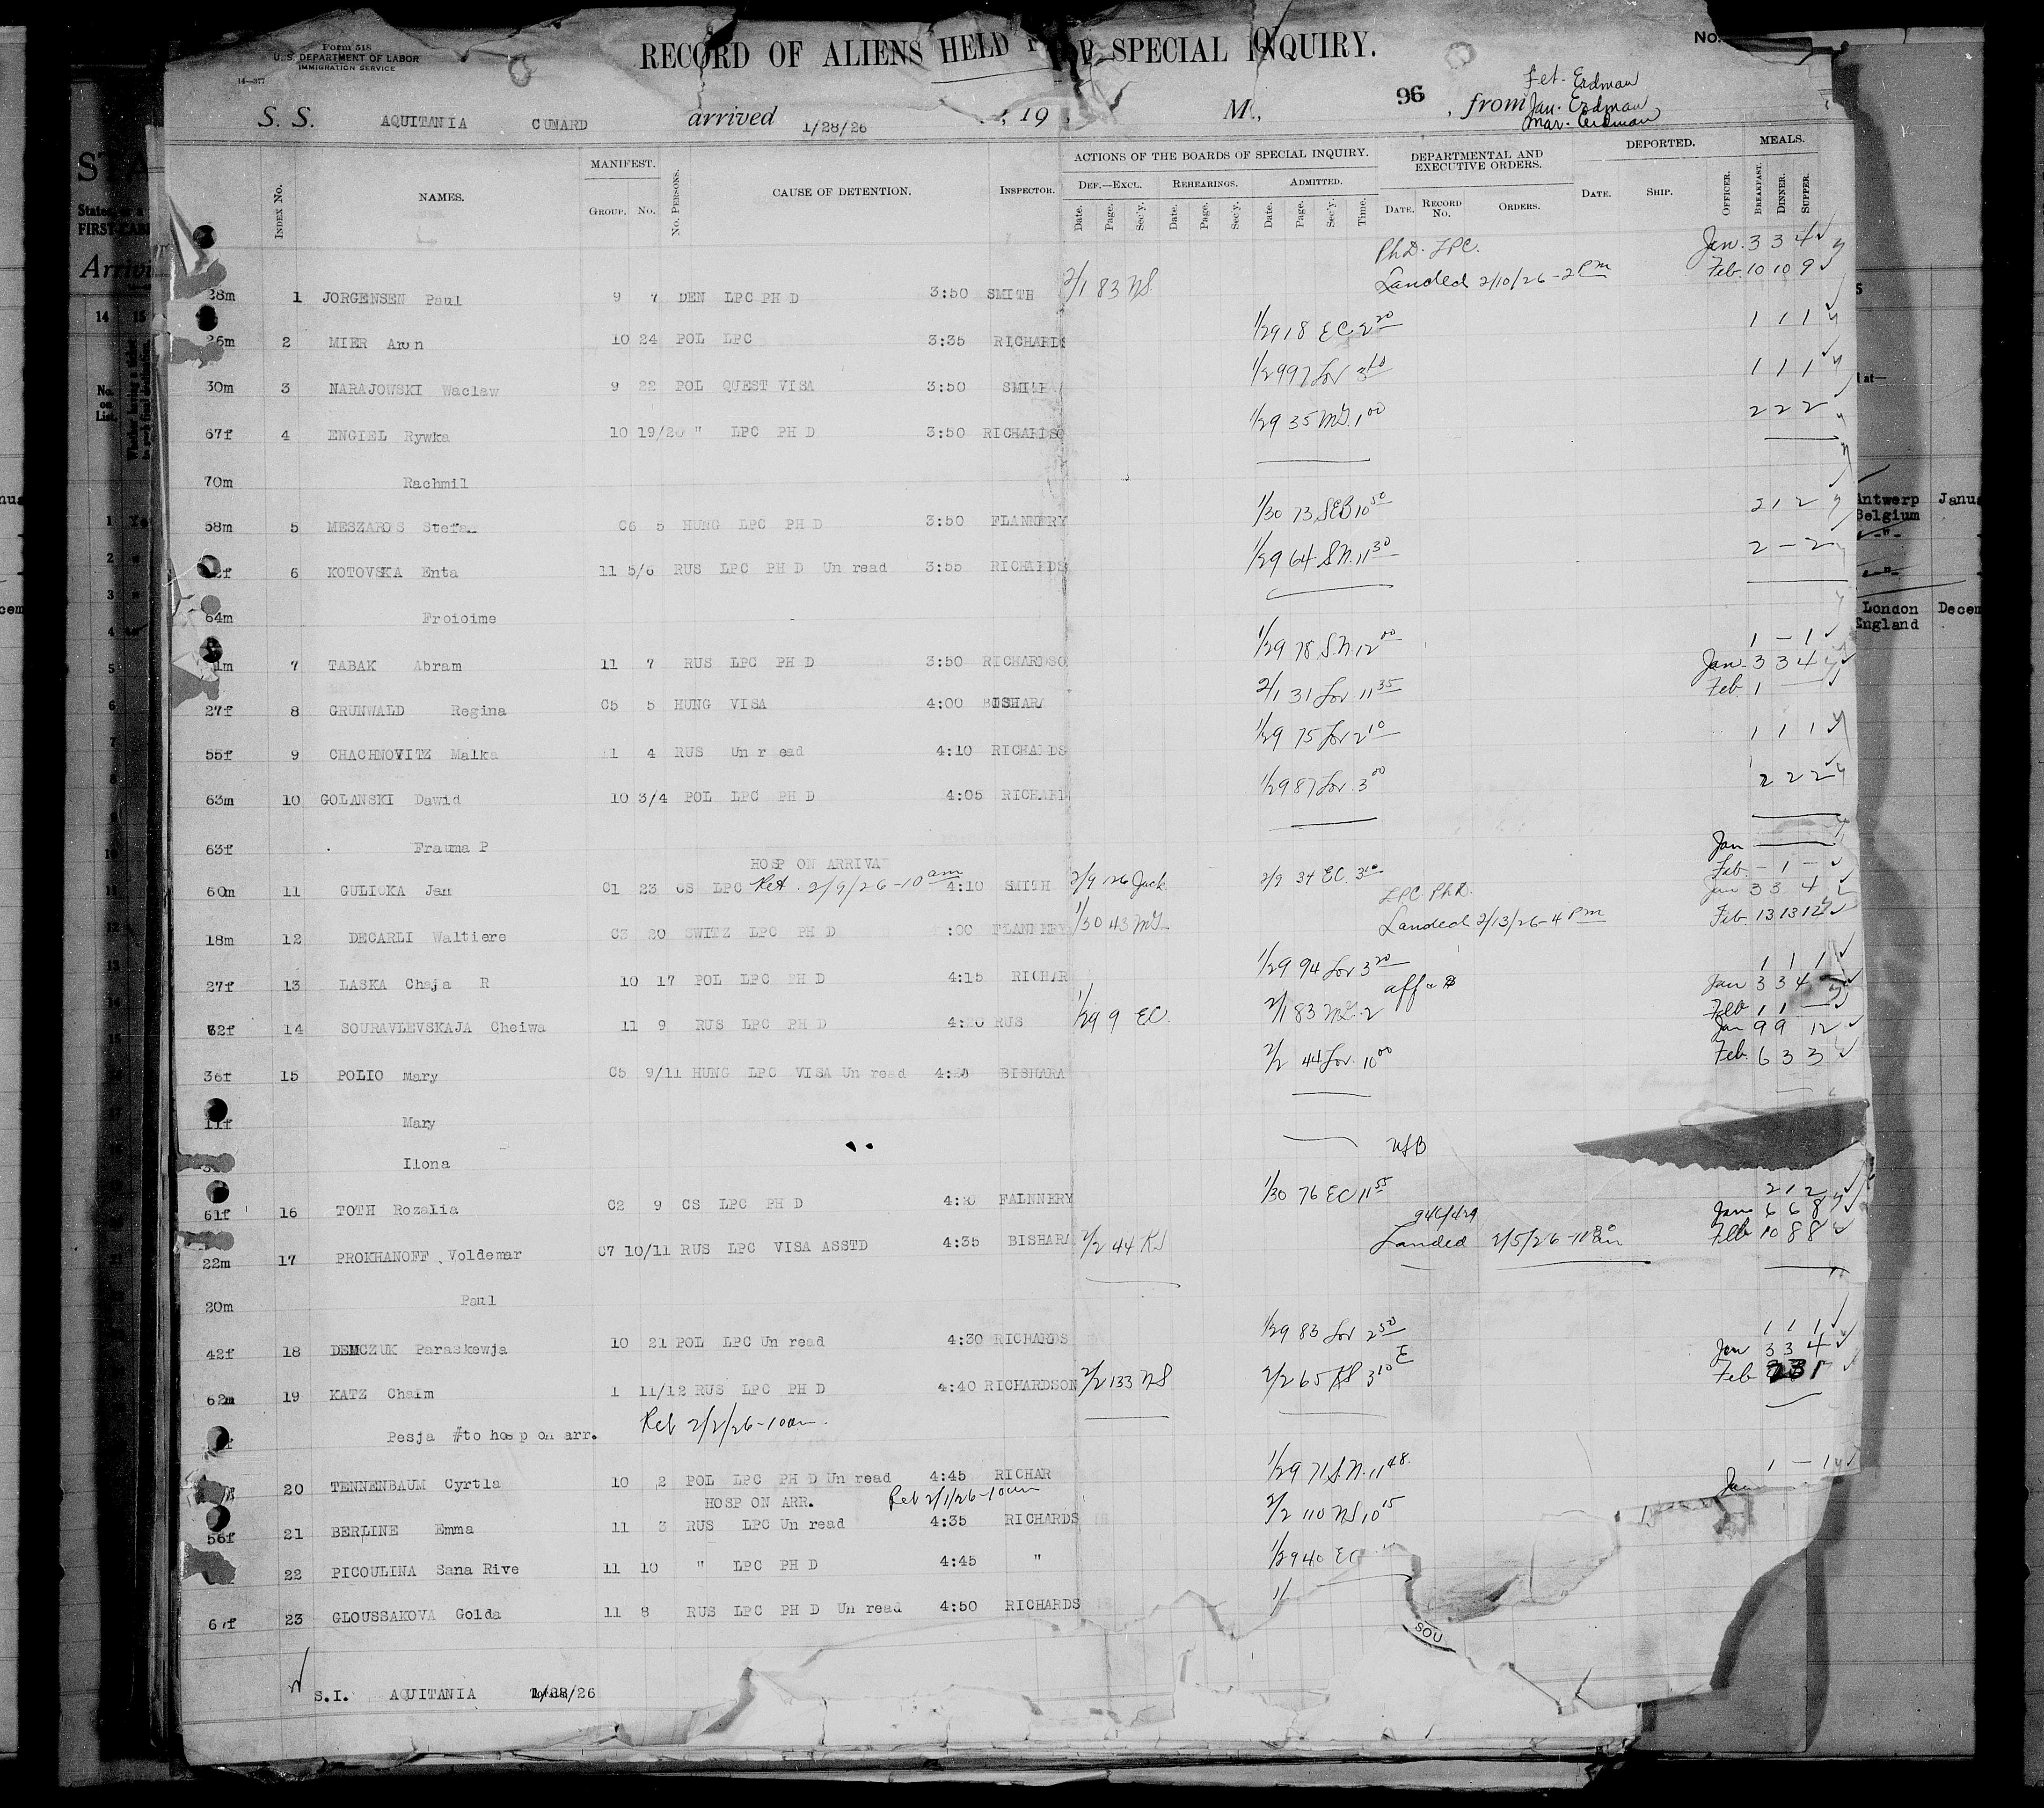 Form 518
U. S. DEPARTMENT OF LABOR
IMMIGRATION SERVICE
14—377
RECORD OF ALIENS HELD SPECIAL INQUIRY.
No.
Fet. Erdman
S. S. AQUITANIA CUNARD arrived 1/28/26 , 19 , M., 96 , from Jan. Erdman
Mar. Erdman
INDEX No. NAMES. MANIFEST. GROUP. No. No. PERSONS. CAUSE OF DETENTION. INSPECTOR. ACTIONS OF THE BOARDS OF SPECIAL INQUIRY. DEPARTMENTAL AND EXECUTIVE ORDERS. DEPORTED. MEALS.
DEF.—EXCL. REHEARINGS. ADMITTED.
Date. Page. Sec'y. Date. Page. Sec'y. Date. Page. Sec'y. Time. DATE. RECORD No. ORDERS. DATE. SHIP. OFFICER. BREAKFAST. DINNER. SUPPER.
Ph.D. LPC. Jan. 3 3 4
Landed 2/10/26 - 2 pm Feb. 10 10 9
28m 1 JORGENSEN Paul 9 7 DEN LPC PH D 3:50 SMITH 2/1 83 NS
26m 2 MIER Aron 10 24 POL LPC 3:35 RICHARDS 1/29 18 EC 2 20 1 1 1
30m 3 NARAJOWSKI Waclaw 9 22 POL QUEST VISA 3:50 SMITH 1/29 97 Lor 3 40 1 1 1
67f 4 ENGIEL Rywka 10 19/20 " LPC PH D 3:50 RICHARDSO 1/29 35 MG. 1 00 2 2 2
70m Rachmil
58m 5 MESZAROS Stefa C6 5 HUNG LPC PH D 3:50 FLANNERY 1/30 73 SEB 10 50 2 1 2
6 KOTOVSKA Enta 11 5/6 RUS LPC PH D Un read 3:55 RICHARDS 1/29 64 S.N. 11 30 2 - 2
64m Froicime
1m 7 TABAK Abram 11 7 RUS LPC PH D 3:50 RICHARDSO 1/29 78 S.N. 12 00 1 - 1
Jan. 3 3 4
27f 8 GRUNWALD Regina C5 5 HUNG VISA 4:00 BISHARA 2/1 31 Lor. 11 35 Feb. 1
55f 9 CHACHNOVITZ Malka 11 4 RUS Un r ead 4:10 RICHARDS 1/29 75 Lor 2 10 1 1 1
63m 10 GOLANSKI Dawid 10 3/4 POL LPC PH D 4:05 RICHARD 1/29 87 Lor. 3 00 2 2 2
63f Frauma P
HOSP ON ARRIVAL Jan
60m 11 GULICKA Jan C1 23 CS LPC Ret. 2/9/26 - 10 am 4:10 SMITH 2/9 126 Jack. 2/9 34 EC. 3 10 Feb. - 1 -
LPC Ph.D. Jan 3 3 4
18m 12 DECARLI Waltiere C3 20 SWITZ LPC PH D :00 FLANNERY 1/30 43 MG. Landed 2/13/26 - 4 pm Feb 13 13 12
27f 13 LASKA Chaja R 10 17 POL LPC PH D 4:15 RICHAR 1/29 94 Lor 3 20 1 1 1
aff Jan 3 3 4
62f 14 SOURAVLEVSKAJA Cheiwa 11 9 RUS LPC PH D 4:20 RUS 1/29 9 EC. 2/1 83 2 Feb 1 1 -
Jan 9 9 12
36f 15 POLIO Mary C5 9/11 HUNG LPC VISA Un read 4:20 BISHARA 2/2 44 Lor. 10 00 Feb. 6 3 3
11f Mary
Ilona
61f 16 TOTH Rozalia C2 9 CS LPC PH D 4: FALNNERY 1/30 76 EC 11 55 2 1 2
Jan 6 6 8
22m 17 PROKHANOFF, Voldemar C7 10/11 RUS LPC VISA ASSTD 4:35 BISHARA 2/2 44 KS Landed 2/5/26 - Feb 10 8 8
20m Paul
42f 18 DEMCZUK Paraskewja 10 21 POL LPC Un read 4:30 RICHARDS 1/29 83 Lor 2 50 1 1 1
Jan 3 3 4
62m 19 KATZ Chaim 1 11/12 RUS LPC PH D 4:40 RICHARDSON 2/2 133 NS 2/2 65 KS 3 10 E Feb
Pesja #to hosp on arr. Ret 2/2/26 - 10 am.
20 TENNENBAUM Cyrtla 10 2 POL LPC PH D Un read 4:45 RICHAR 1/29 71 S.N. 11 48. 1 - 1
HOSP ON ARR. Ret 2/1/26 - 10 am Jan
56f 21 BERLINE Emma 11 3 RUS LPC Un read 4:35 RICHARDS 2/2 110 NS 10 15
22 PICOULINA Sana Rive 11 10 " LPC PH D 4:45 " 1/29 40 EC
67f 23 GLOUSSAKOVA Golda 11 8 RUS LPC PH D Un read 4:50 RICHARDS 1/
SOU
S.I. AQUITANIA 1/28/26
Antwerp Janua
Belgium
London Decem
England